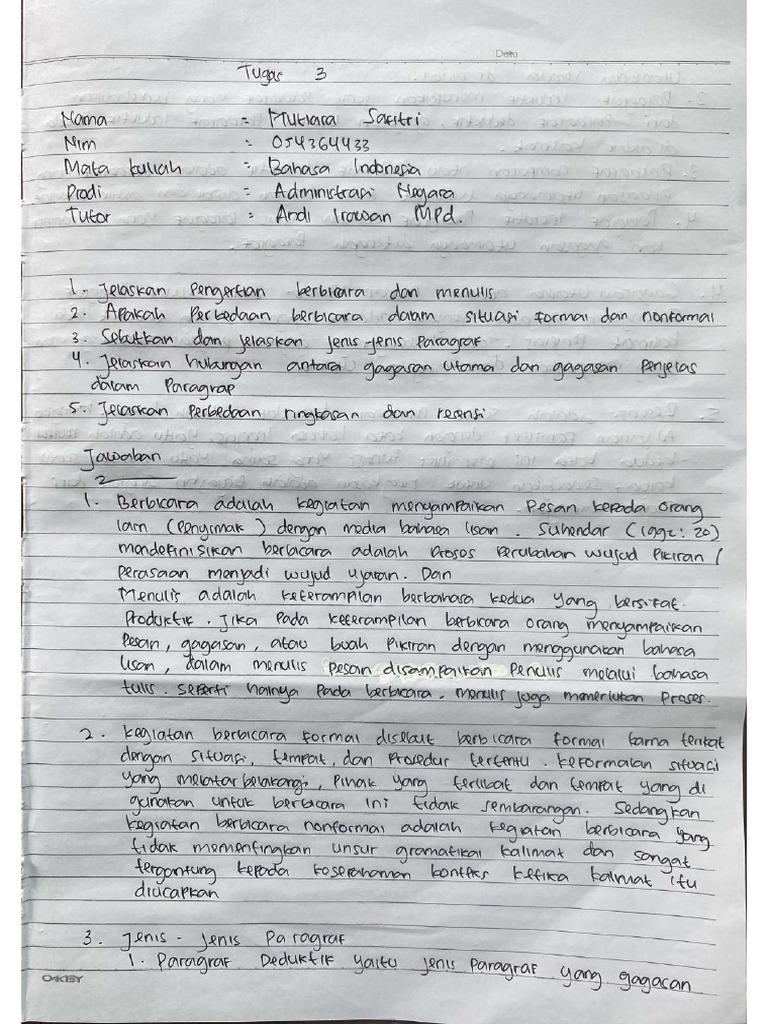 Date
Tugas 3
Nama : Mutiara Safitri
Nim : 054364433
Mata kuliah : Bahasa Indonesia
Prodi : Administrasi Negara
Tutor : Andi Irawan MPd.
1. Jelaskan Pengertian berbicara dan menulis
2. Apakah Perbedaan berbicara dalam situasi formal dan nonformal
3. Sebutkan dan jelaskan jenis-jenis Paragraf
4. Jelaskan hubungan antara gagasan utama dan gagasan Penjelas
dalam Paragrap
5. Jelaskan Perbedaan ringkasan dan resensi
Jawaban
1. Berbicara adalah kegiatan menyampaikan Pesan kepada orang
lain (Penyimak) dengan media bahasa lisan. Suhendar (1992:20)
mendefinisikan berbicara adalah Proses Perubahan wujud Pikiran/
Perasaan menjadi wujud ujaran. Dan
Menulis adalah keterampilan berbahasa kedua yang bersifat
Produktif. Jika Pada keterampilan berbicara orang menyampaikan
Pesan, gagasan, atau buah Pikiran dengan menggunakan bahasa
lisan, dalam menulis Pesan disampaikan Penulis melalui bahasa
tulis. Seperti halnya Pada berbicara, menulis juga memerlukan Proses.
2. Kegiatan berbicara formal disebut berbicara formal karna terikat
dengan situasi, tempat, dan Prosedur tertentu. Keformalan situasi
yang melatar belakangi, Pihak yang terlibat dan tempat yang di
gunakan untuk berbicara ini tidak sembarangan. Sedangkan
kegiatan berbicara nonformal adalah kegiatan berbicara yang
tidak mementingkan unsur gramatikal kalimat dan sangat
tergantung kepada kesepahaman konteks ketika kalimat itu
diucapkan
3. Jenis - Jenis Paragraf
1. Paragraf Deduktif yaitu jenis Paragraf yang gagasan
OKEY